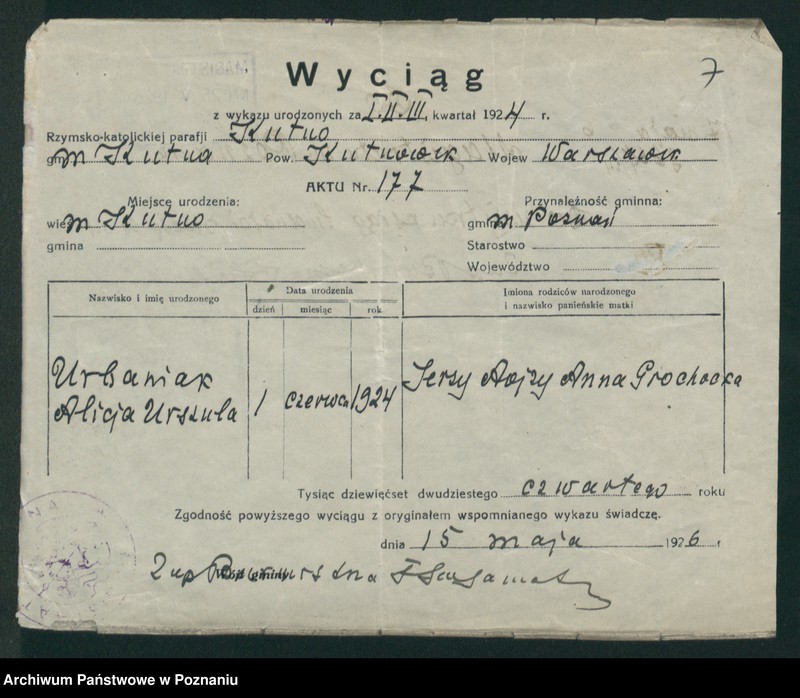 7
Wyciąg
z wykazu urodzonych za I. II. III, kwartał 1924 r.
Rzymsko-katolickiej parafji Kutno
gm m Kutna Pow. Kutnowsk Wojew Warszawsk
AKTU Nr. 177
Miejsce urodzenia:
wieś m Kutno
gmina
Przynależność gminna:
gmina m Poznań
Starostwo
Województwo
Nazwisko i imię urodzonego
Data urodzenia
dzień miesiąc rok
Imiona rodziców narodzonego
i nazwisko panieńskie matki
Urbaniak
Alicja Urszula
1 czerwca 1924
Jerzy Anna Grochocka
Tysiąc dziewięćset dwudziestego czwartego roku
Zgodność powyższego wyciągu z oryginałem wspomnianego wykazu świadczę.
dnia 15 maja 1926 r.
Wójt gminy
Archiwum Państwowe w Poznaniu